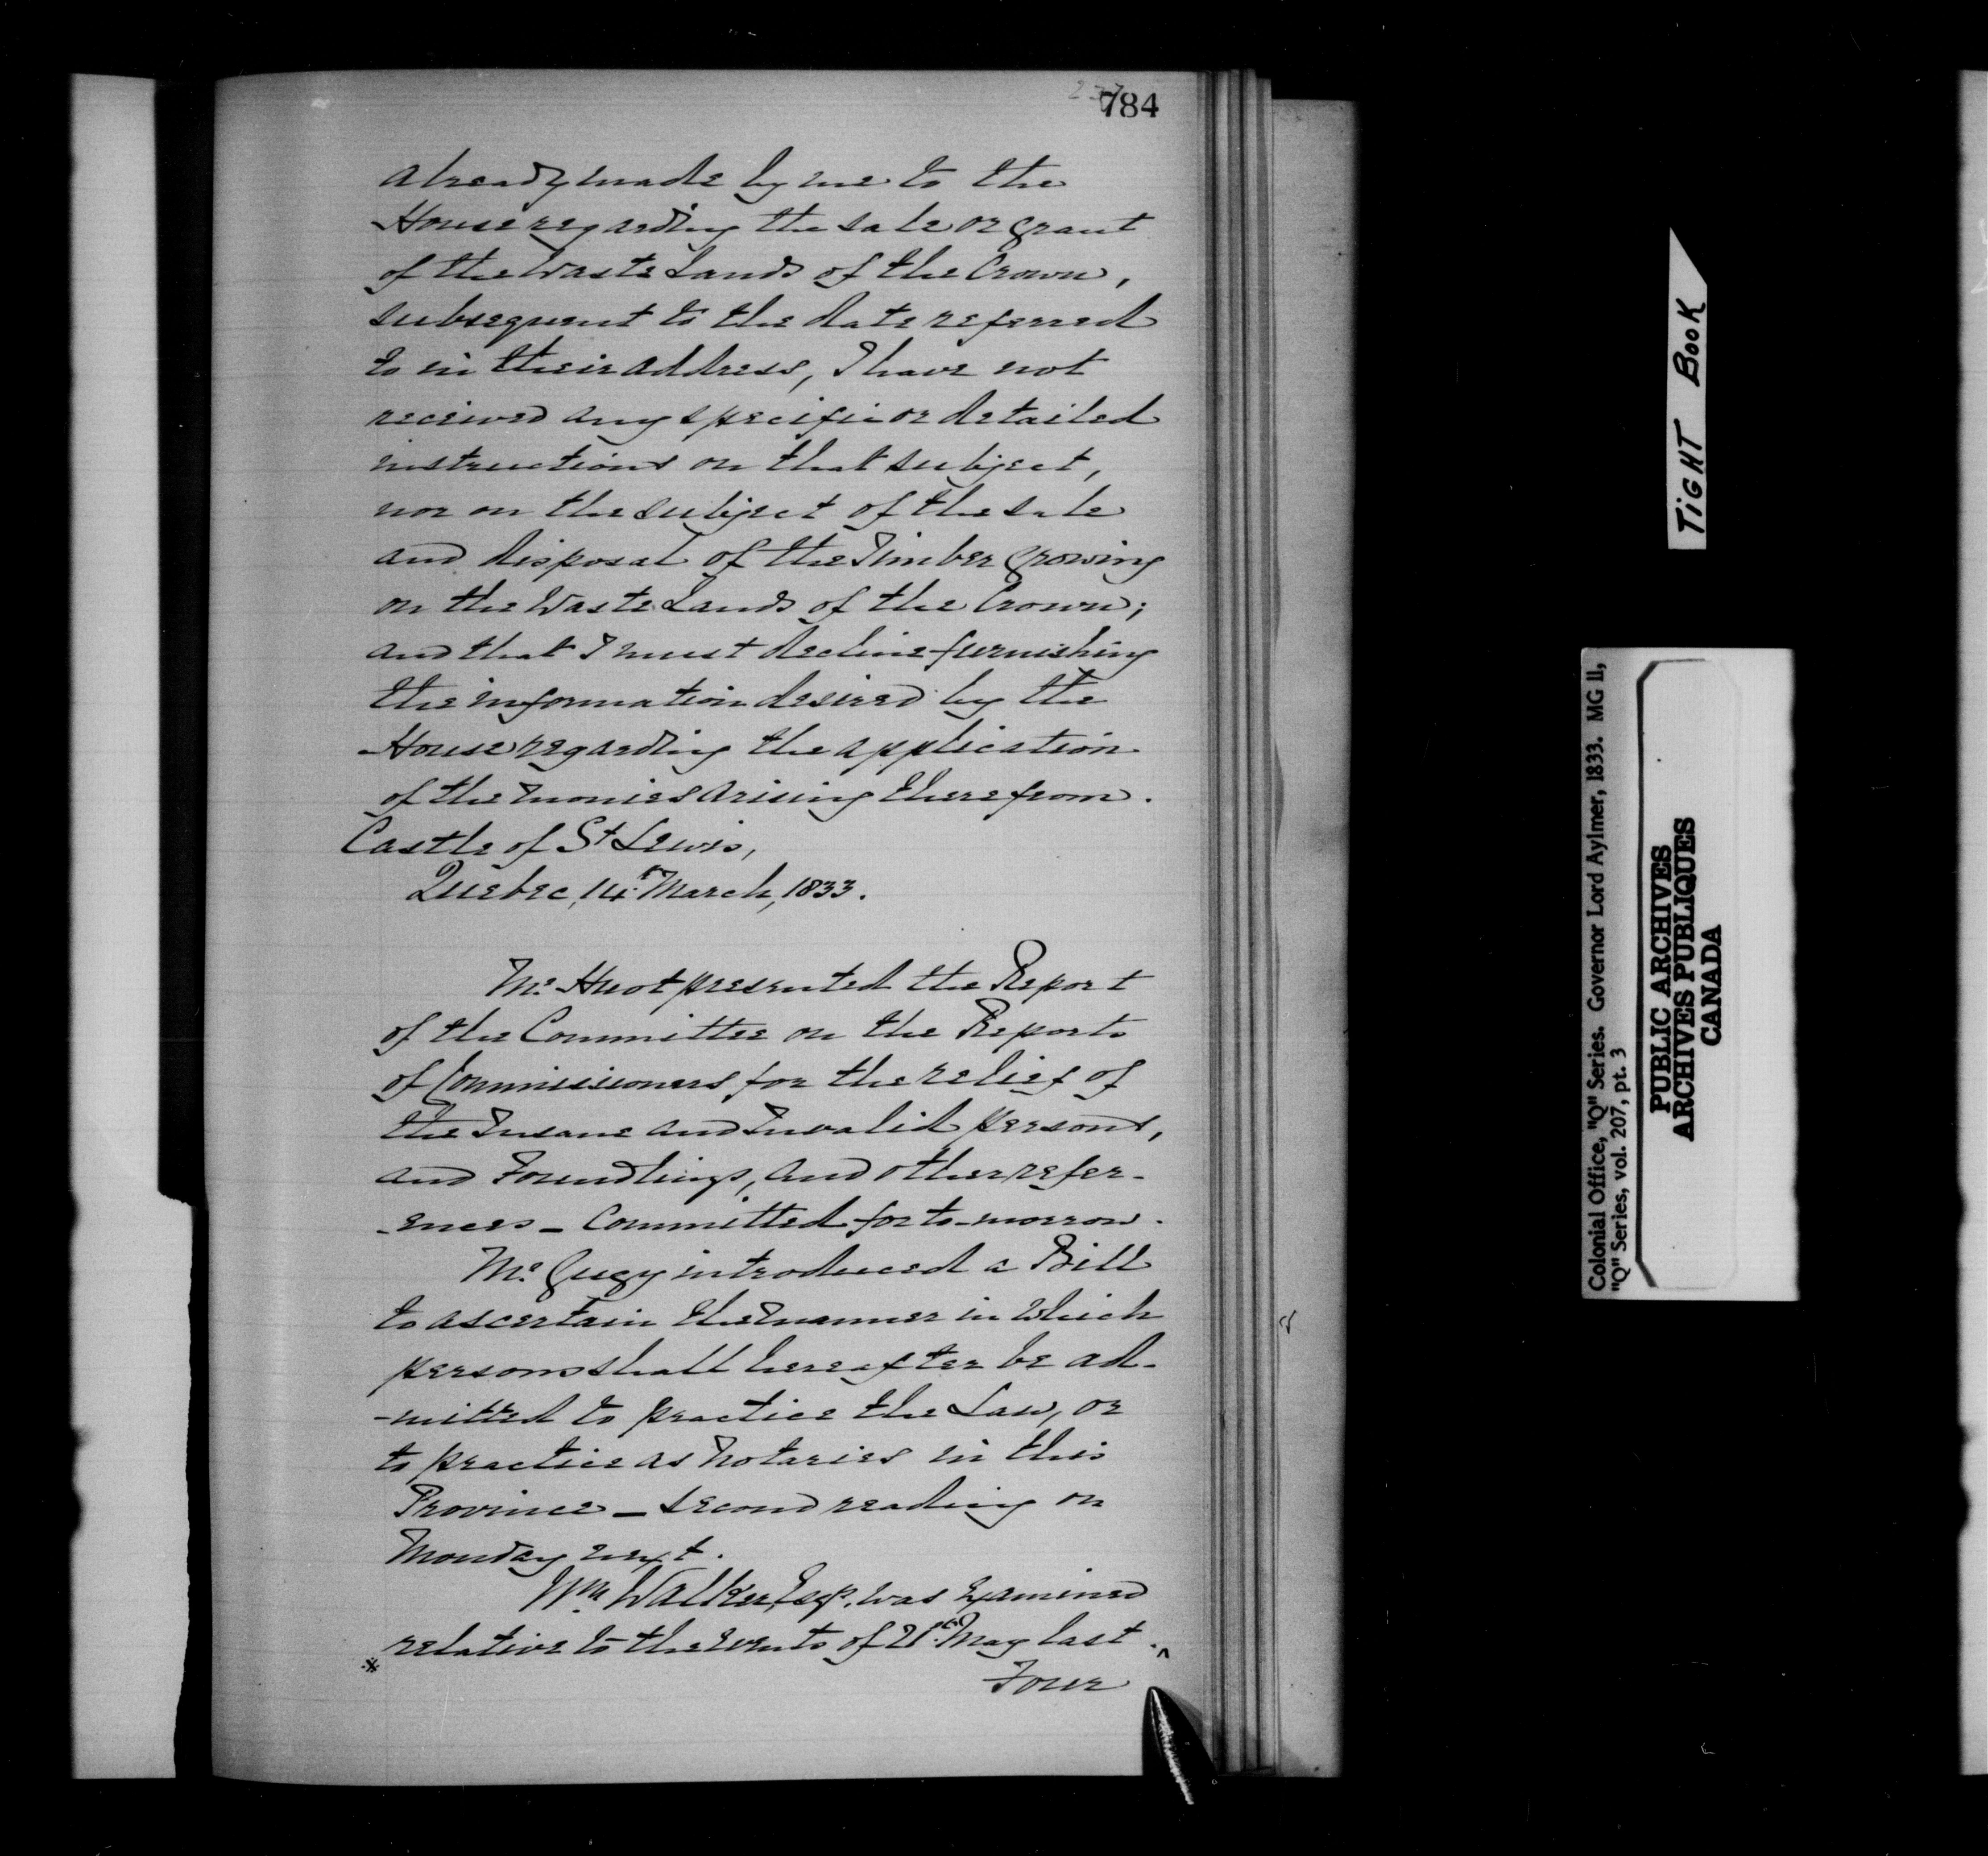 237
784
already made by me to the
House regarding the sale or grant
of the Waste Lands of the Crown,
subsequent to the date referred
to in their address, I have not
received any specific or detailed
instructions on that subject,
nor on the subject of the sale
and disposal of the Timber growing
on the Waste Lands of the Crown;
and that I must decline furnishing
the information desired by the
House regarding the application
of the monies arising therefrom.
Castle of St Lewis,
Quebec, 14th March, 1833.
Mr. Huot presented the Report
of the Committee on the Reports
of Commissioners for the relief of
the Insane and Invalid persons,
and Foundlings, and other refer-
-ences – Committed for to-morrow.
Mr. Gugy introduced a Bill
to ascertain the manner in which
persons shall hereafter be ad-
-mitted to practice the Law, or
to practice as Notaries in this
Province – second reading on
Monday next.
Wm. Walker, Esqr. was examined
relative to the events of 21st May last.
Four
TIGHT BOOK
Colonial Office, "Q" Series. Governor Lord Aylmer, 1833. MG 11,
"Q" Series, vol. 207, pt. 3
PUBLIC ARCHIVES
ARCHIVES PUBLIQUES
CANADA